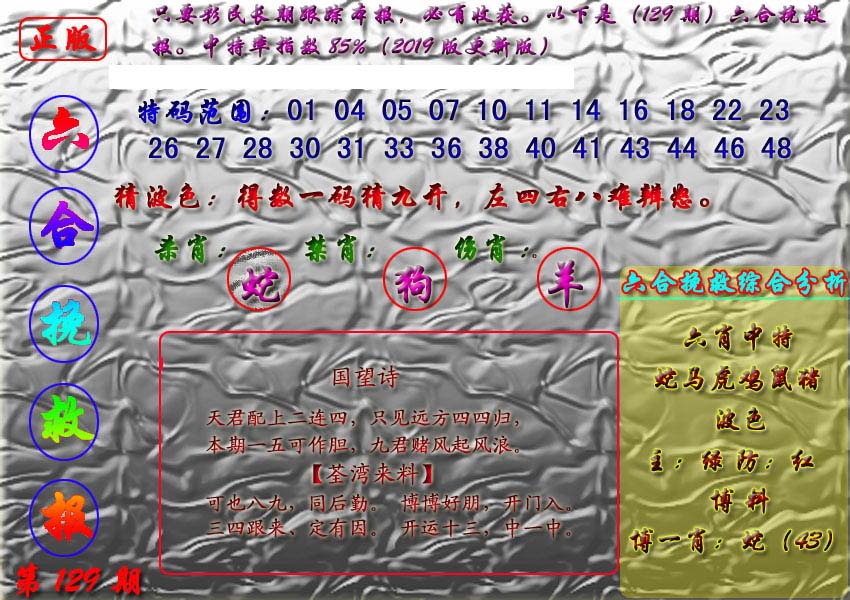 正版
只要彩民长期跟踪本报，必有收获。以下是（129期）六合挽救
报。中特率指数85%（2019版更新版）
六合挽救报
第129期
特码范围：01 04 05 07 10 11 14 16 18 22 23
26 27 28 30 31 33 36 38 40 41 43 44 46 48
猜波色：得数一码猜九开，左四右八难辩悲。
杀肖：蛇 禁肖：狗 伤肖：羊
国望诗
天君配上二连四，只见远方四四归，
本期一五可作胆，九君赌风起风浪。
【荃湾来料】
可也八九，同后勤。 博博好朋，开门入。
三四跟来、定有因。 开运十三，中一中。
六合挽救综合分析
六肖中特
蛇马虎鸡鼠猪
波色
主：绿 防：红
博料
博一肖：蛇（43）